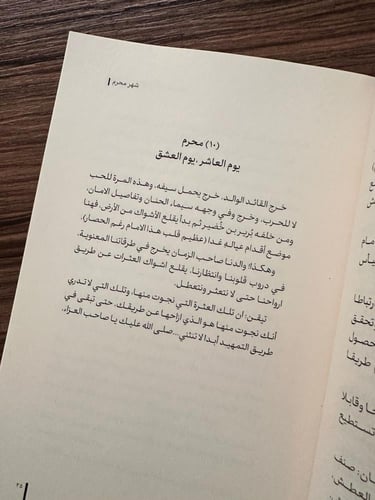 شهر محرم
(١٠) محرم
يوم العاشر، يوم العشق
خرج القائد الوالد، خرج يحمل سيفه، وهذه المرة للحب
لا للحرب، وخرج وفي وجهه سيماء الحنان وتفاصيل الامان،
ومن خلفه بُرير بن خُضير ثم بدأ يقلع الأشواك من الأرض. فهنا
موضع أقدام عياله غدا (عظيم قلب هذا الامام رغم الحصار).
وهكذا؛ والدنا صاحب الزمان يخرج في طرقاتنا المعنوية،
في دروب قلوبنا وانتظارنا، يقلع اشواك العثرات عن طريق
ارواحنا حتى لا نتعثر ونتعطل.
تيقن؛ ان تلك العثرة التي نجوت منها، وتلك التي لا تدري
أنك نجوت منها هو الذي ازاحها عن طريقك، حتى تبقى في
طريق التمهيد أبدا لا تنثني... صلى الله عليك يا صاحب العزاء.
٢٥
ارتباطا
تحقق
حصول
طريقا
حا وقابلا
تستطيع
ان: صنف
العطش.